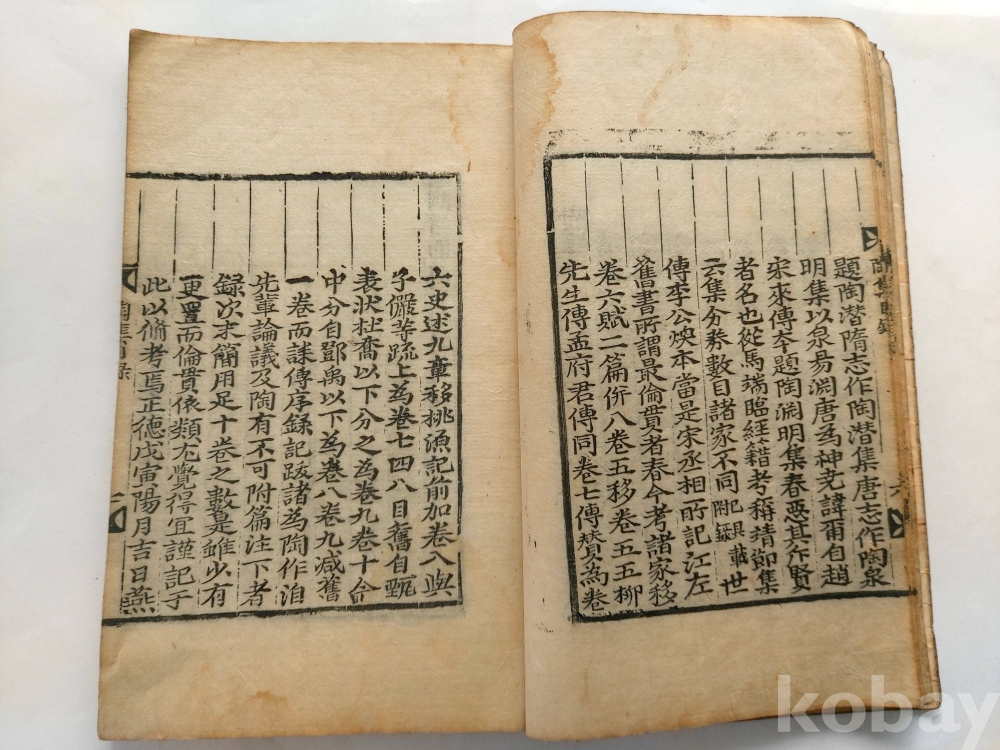 題陶潜隋志作陶潜集唐志作陶泉
明集以泉易淵唐爲神尭諱爾自趙
宋來傳夲題陶淵明集春惡其斥賢
者名也從馬端臨経籍考稱靖節集
云集分春數目諸家不同已具載附錄世
傳李公煥本當是宋丞相所記江左
舊書所謂最倫貫者春今考諸家移
卷六賦二篇併八卷五移卷五五柳
先生傳孟府君傳同卷七傳賛為卷
六史述九章移桃源記前加卷八與
子儼等疏上爲卷七四八目舊自甄
表狀杜喬以下分之爲卷九卷十
中分自鄧禹以下爲卷八卷九減舊
一卷而誄傳序錄記跋諸爲陶作洎
先輩論議及陶有不可附篇注下者
錄次末簡用足十卷之數是雖少有
更置而倫貫依類尤覺得宜謹記于
此以俻考焉正德戊寅陽月吉日燕
陶集目录
陶集目録
六
kobay